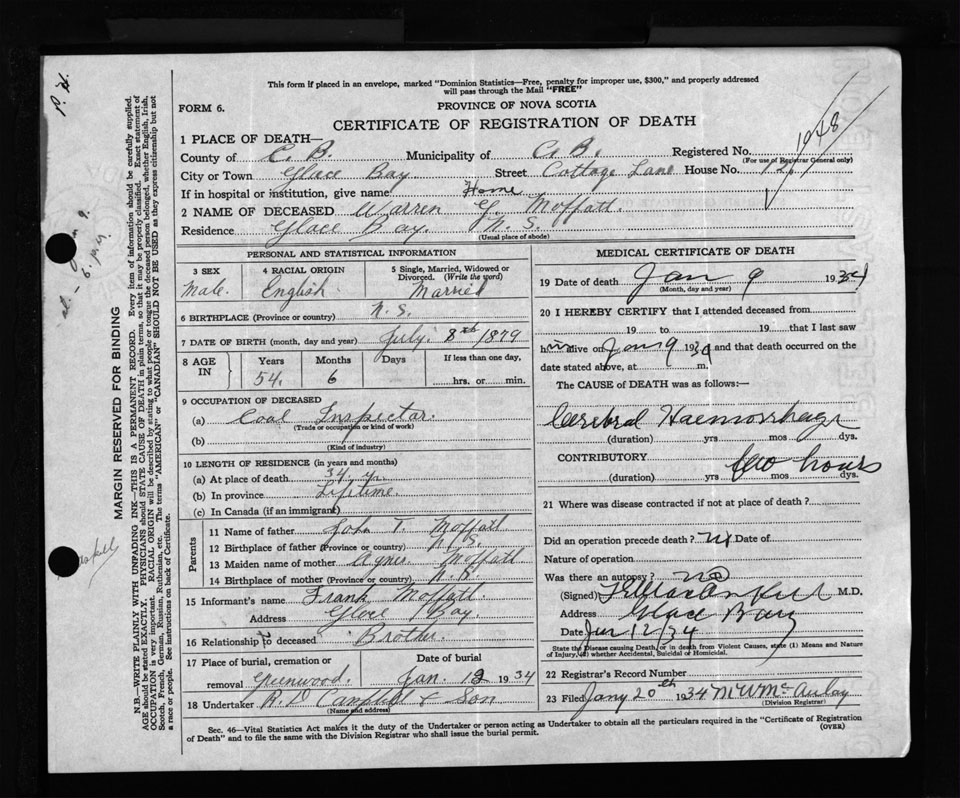 This form if placed in an envelope, marked "Dominion Statistics—Free, penalty for improper use, $300," and properly addressed
will pass through the Mail "FREE"
P. H.
FORM 6.
PROVINCE OF NOVA SCOTIA
CERTIFICATE OF REGISTRATION OF DEATH
1948
1 PLACE OF DEATH—
County of C. B. Municipality of C. B. Registered No.
(For use of Registrar General only)
City or Town Glace Bay Street Cottage Lane House No. 126
If in hospital or institution, give name Home
2 NAME OF DECEASED Warren G. Moffatt.
Residence Glace Bay. N. S.
(Usual place of abode)
PERSONAL AND STATISTICAL INFORMATION
3 SEX 4 RACIAL ORIGIN 5 Single, Married, Widowed or Divorced. (Write the word)
Male. English. Married
6 BIRTHPLACE (Province or country) N. S.
7 DATE OF BIRTH (month, day and year) July. 8th 1879
8 AGE IN Years Months Days If less than one day,
54. 6 hrs. or min.
9 OCCUPATION OF DECEASED
(a) Coal Inspector.
(Trade or occupation or kind of work)
(b)
(Kind of industry)
10 LENGTH OF RESIDENCE (in years and months)
(a) At place of death 34 y.
(b) In province Lifetime.
(c) In Canada (if an immigrant)
Parents
11 Name of father John T. Moffatt
12 Birthplace of father (Province or country) N. S.
13 Maiden name of mother Agnes Moffatt
14 Birthplace of mother (Province or country) N. S.
15 Informant's name Frank Moffatt.
Address Glace Bay.
16 Relationship to deceased Brother.
17 Place of burial, cremation or removal Greenwood. Date of burial Jan. 12 1934
18 Undertaker R. D Campbell & Son
(Name and address)
MEDICAL CERTIFICATE OF DEATH
19 Date of death Jan 9 1934
(Month, day and year)
20 I HEREBY CERTIFY that I attended deceased from
19 to 19 that I last saw
him alive on Jan 9 1934 and that death occurred on the
date stated above, at m.
The CAUSE OF DEATH was as follows:—
Cerebral Haemorrhage
(duration) yrs mos dys.
CONTRIBUTORY
few hours
(duration) yrs mos dys.
21 Where was disease contracted if not at place of death?
Did an operation precede death? Date of
Nature of operation
Was there an autopsy? no
(Signed) M.D.
Address Glace Bay
Date Jan 12/34
State the Disease causing Death, or in death from Violent Causes, state (1) Means and Nature
of Injury, (2) whether Accidental, Suicidal or Homicidal.
22 Registrar's Record Number
23 Filed Jany 20th 1934 McAulay
(Division Registrar)
Sec. 46—Vital Statistics Act makes it the duty of the Undertaker or person acting as Undertaker to obtain all the particulars required in the "Certificate of Registration
of Death" and to file the same with the Division Registrar who shall issue the burial permit.
(OVER)
MARGIN RESERVED FOR BINDING
N.B.—WRITE PLAINLY WITH UNFADING INK—THIS IS A PERMANENT RECORD. Every item of information should be carefully supplied.
AGE should be stated EXACTLY. PHYSICIANS should STATE CAUSE OF DEATH in plain terms, so that it may be properly classified. Exact statement of
OCCUPATION is very important. RACIAL ORIGIN will be described by stating to what people or tongue the deceased person belonged, whether English, Irish,
Scotch, French, German, Russian, Ruthenian, etc. The terms "AMERICAN" or "CANADIAN" SHOULD NOT BE USED as they express citizenship but not
a race or people. See instructions on back of Certificate.